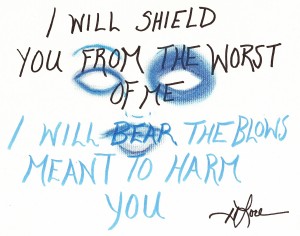 I WILL SHIELD
YOU FROM THE WORST
OF ME
I WILL BEAR THE BLOWS
MEANT TO HARM
YOU